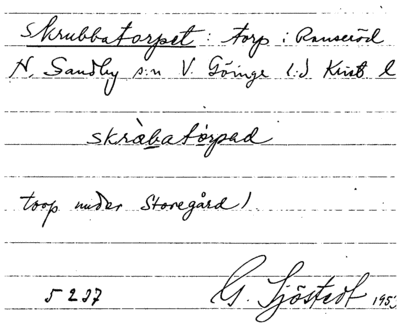 Skrubbatorpet: torp i Ranseröd
N. Sandby sn V. Göinge hd Krist l
skràbatórpad
torp under Storegård
5237 G. Sjöstedt 195